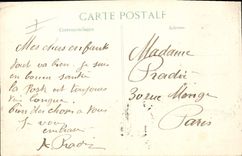 CARTE POSTALE
Correspondance
Adresse
Mes chers enfants
tout va bien. je suis
en bonne santé
la Poste est toujours
longue.
bien des choses à vous
je vous
embrasse
A Pradié
Madame
Pradié
30 rue Monge
Paris